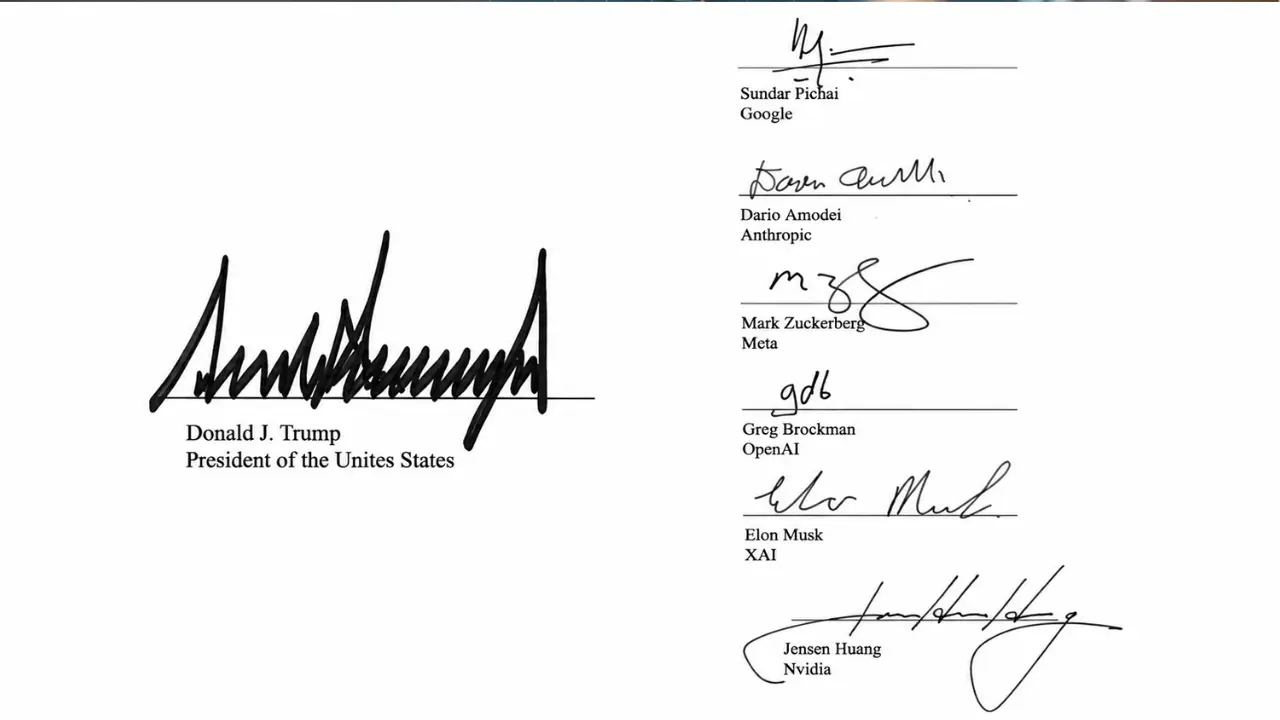 Donald J. Trump
President of the Unites States
Sundar Pichai
Google
Dario Amodei
Anthropic
Mark Zuckerberg
Meta
gdb
Greg Brockman
OpenAI
Elon Musk
Elon Musk
XAI
Jensen Huang
Nvidia